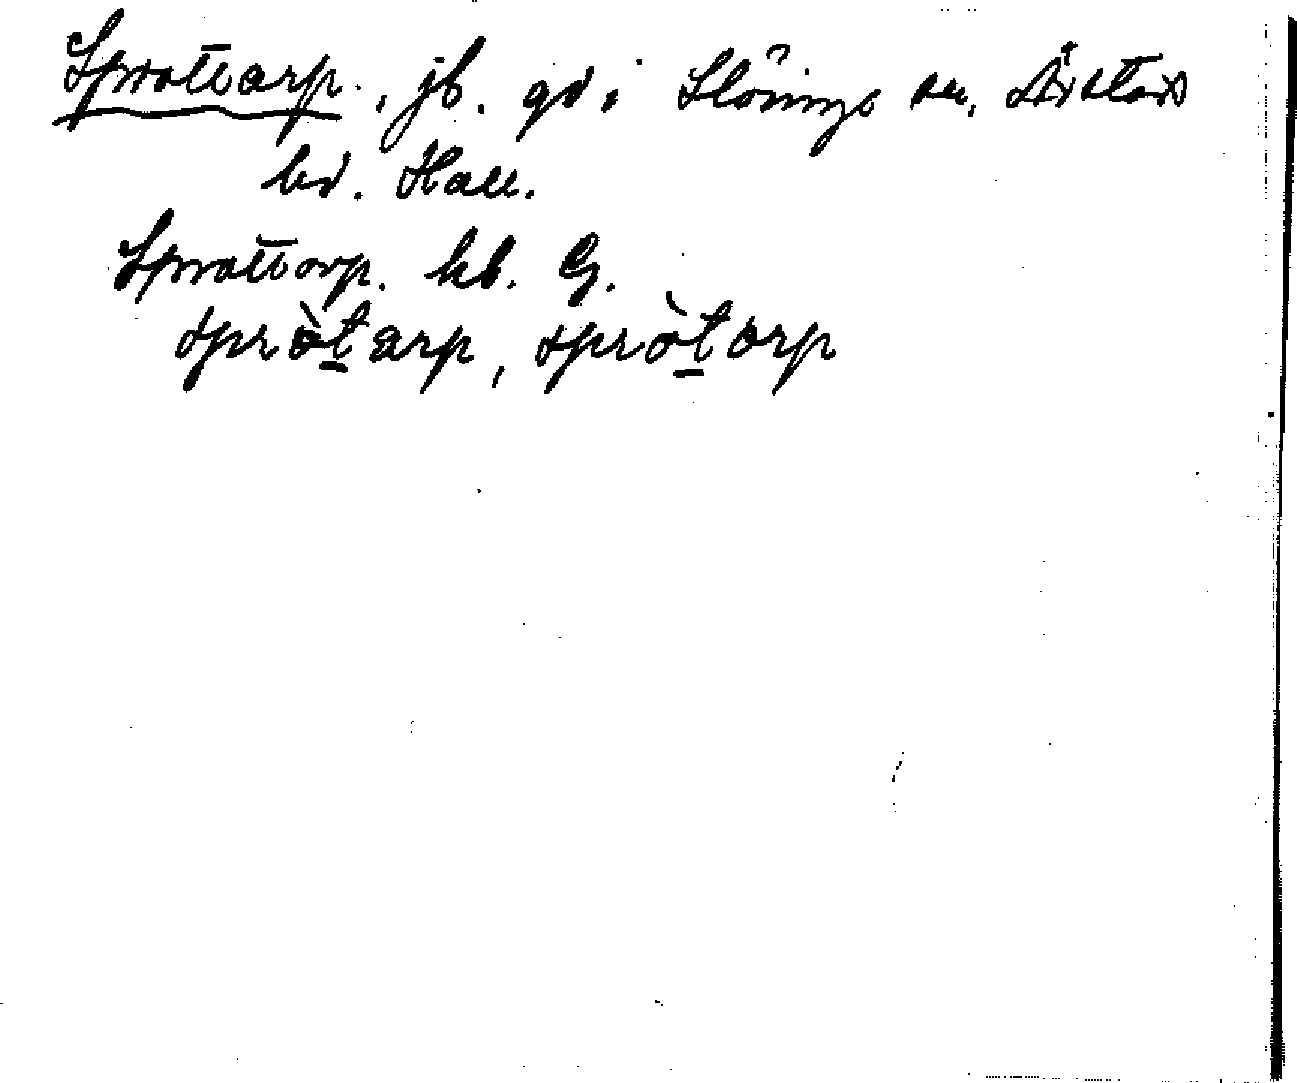 Sprottarp., jb. gd. i Slöinge sn, Årstads
hd. Hall.
Sprottorp. kb. G.
spròtarp, spròtorp